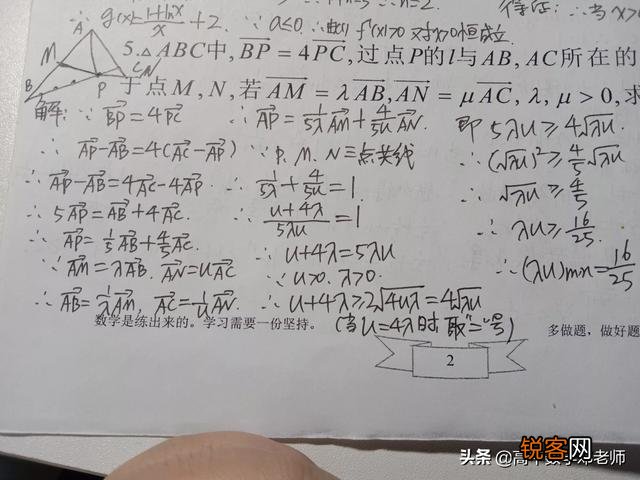 g(x)=\frac{1+lnx}{x}+2. ∵ a≤0. ∴ f'(x)>0 对x>0恒成立.
A
M
B
P
C N
5.△ABC中, \overrightarrow{BP} = 4\overrightarrow{PC}, 过点P的l与AB, AC所在的
于点M, N, 若\overrightarrow{AM} = λ\overrightarrow{AB}, \overrightarrow{AN} = μ\overrightarrow{AC}, λ, μ > 0, 求
解: ∵ \overrightarrow{BP}=4\overrightarrow{PC}
∴ \overrightarrow{AP}-\overrightarrow{AB}=4(\overrightarrow{AC}-\overrightarrow{AP})
∴ \overrightarrow{AP}-\overrightarrow{AB}=4\overrightarrow{AC}-4\overrightarrow{AP}
∴ 5\overrightarrow{AP}=\overrightarrow{AB}+4\overrightarrow{AC}
∴ \overrightarrow{AP}=\frac{1}{5}\overrightarrow{AB}+\frac{4}{5}\overrightarrow{AC}.
∵ \overrightarrow{AM}=λ\overrightarrow{AB}. \overrightarrow{AN}=u\overrightarrow{AC}
∴ \overrightarrow{AB}=\frac{1}{λ}\overrightarrow{AM}, \overrightarrow{AC}=\frac{1}{u}\overrightarrow{AN}.
∴ \overrightarrow{AP}=\frac{1}{5λ}\overrightarrow{AM}+\frac{4}{5u}\overrightarrow{AN}.
∵ P. M. N三点共线
∴ \frac{1}{5λ}+\frac{4}{5u}=1.
∴ \frac{u+4λ}{5λu}=1
∴ u+4λ=5λu
∵ u>0. λ>0.
∴ u+4λ≥2\sqrt{4uλ}=4\sqrt{λu}
(当u=4λ时取"="号)
即 5λu≥4\sqrt{λu}.
∴ (\sqrt{λu})^2≥\frac{4}{5}\sqrt{λu}
∴ \sqrt{λu}≥\frac{4}{5}
∴ λu≥\frac{16}{25}.
∴ (λu)min=\frac{16}{25}
数学是练出来的。学习需要一份坚持。
多做题，做好题
2
锐客网
头条 @高中数学 老师